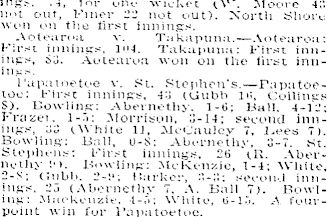 ings. 14, for one wicket (W. Moore 43
not out, Finer 22 not out). North Shore
won on the first innings.
Aotearoa v. Takapuna.—Aotearoa:
First innings, 104. Takapuna: First inn-
ings, 83. Aotearoa won on the first inn-
ings.
Papatoetoe v. St. Stephen's.—Papatoe-
toe: First innings, 43 (Gubb 16, Collings
8). Bowling: Abernethy, 1-6; Ball, 4-12;
Frazer, 1-5; Morrison, 3-14; second inn-
ings, 33 (White 11, McCauley 7, Lees 7).
Bowling: Ball, 0-8; Abernethy, 3-7. St.
Stephens: First innings, 26 (R. Aber-
nethy 9). Bowling: McKenzie, 1-4; White,
2-8; Gubb, 2-9; Barker, 3-3; second inn-
ings, 25 (Abernethy 7, A. Ball 7). Bowl-
ing: Mackenzie, 4-5; White, 6-15. A four-
point win for Papatoetoe.